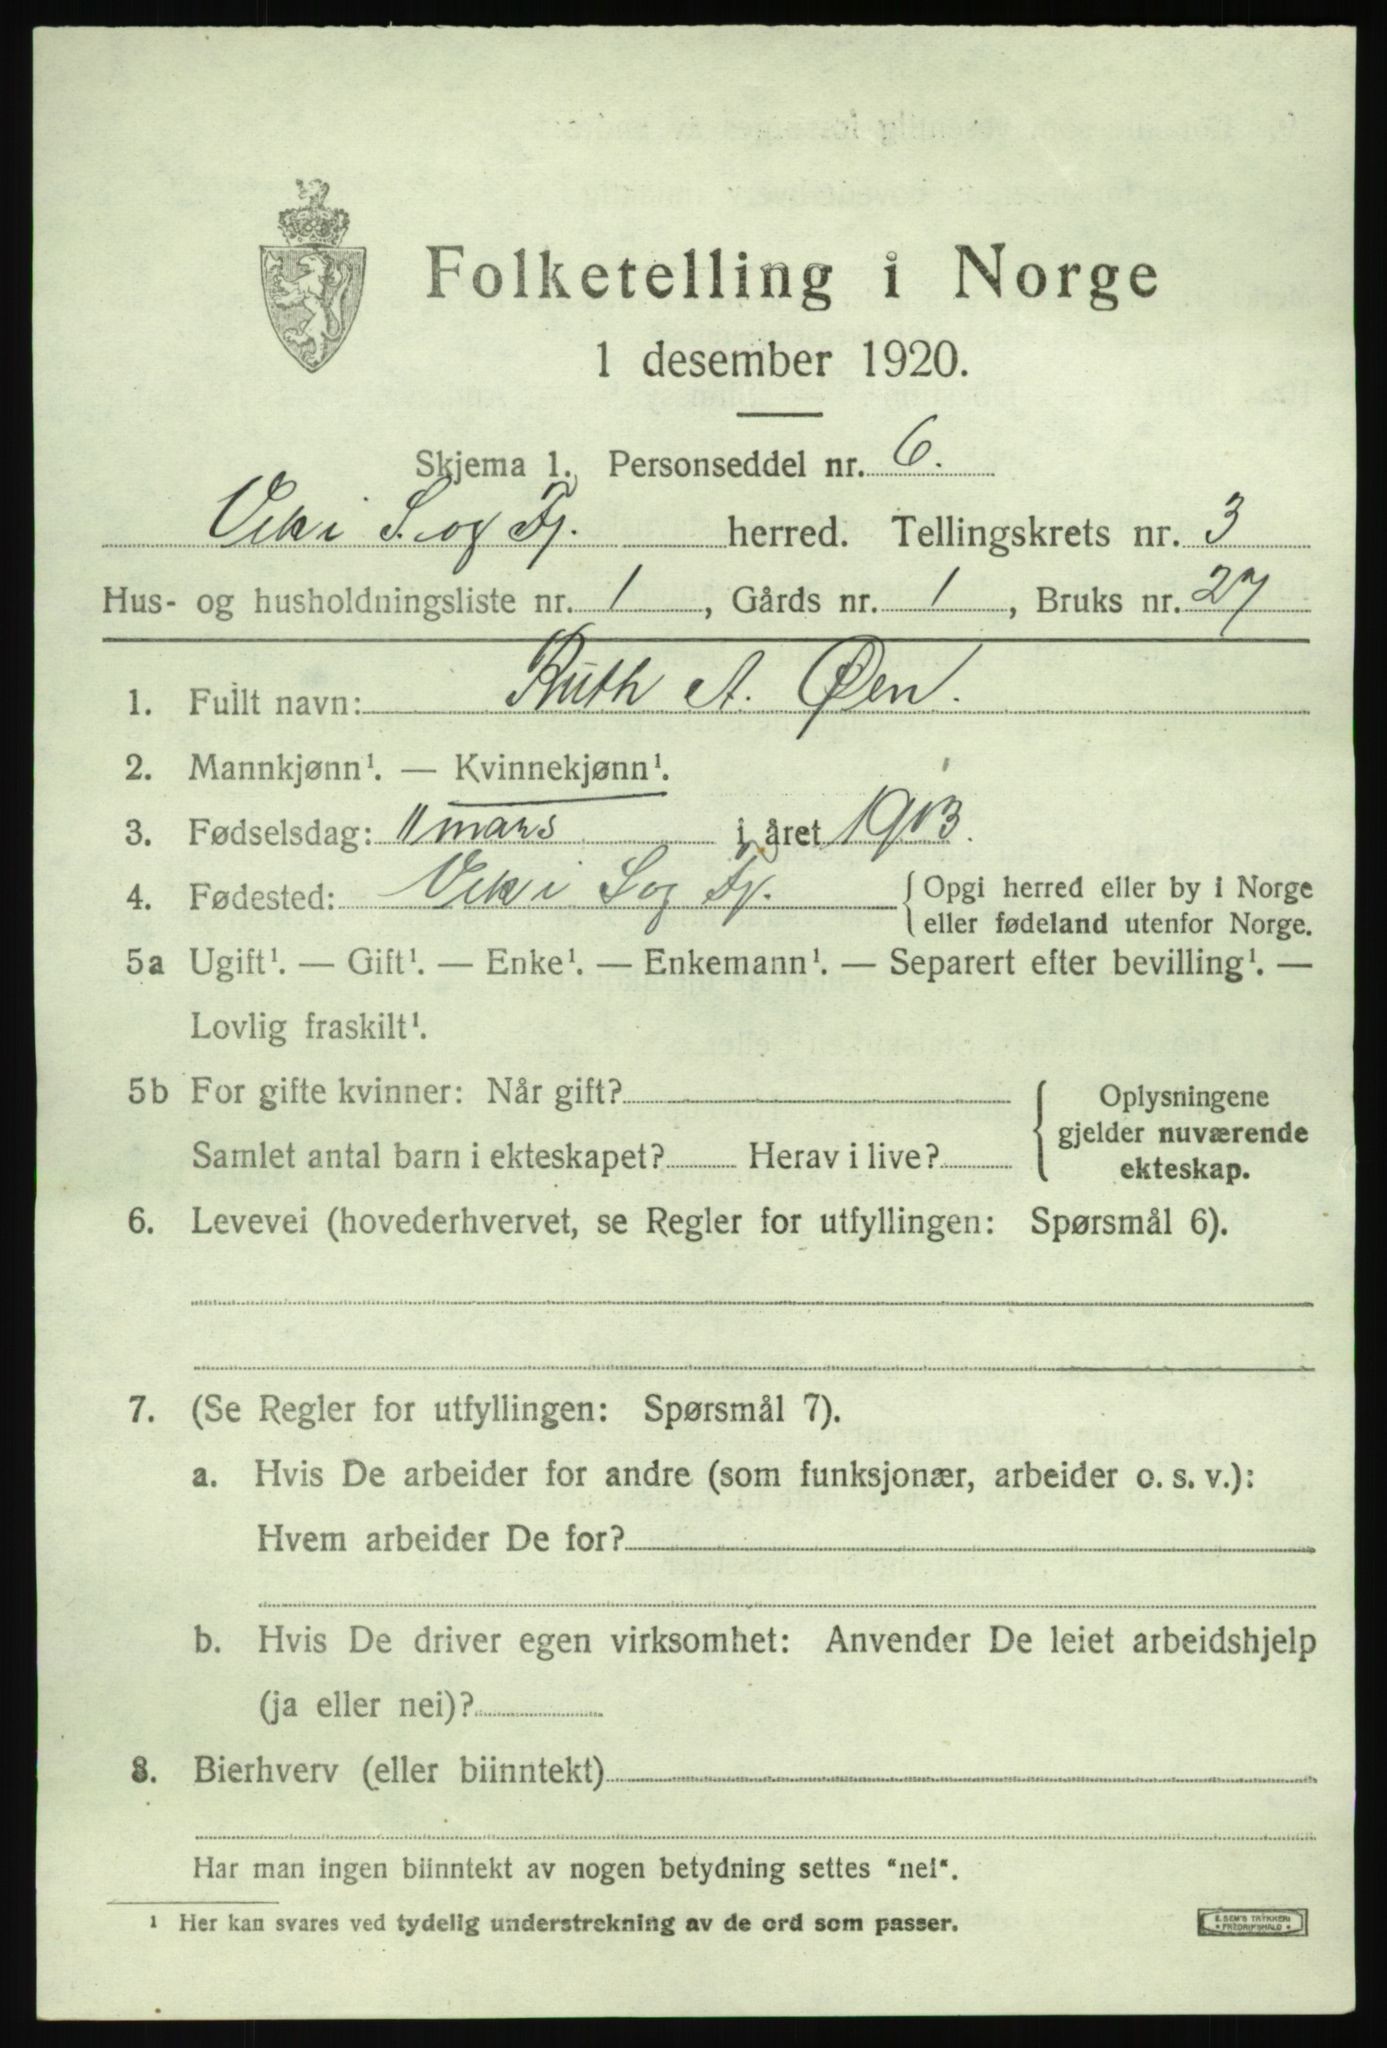 Folketelling i Norge
1 desember 1920.
Skjema 1. Personseddel nr. 6.
Vik i S. og Fj. herred. Tellingskrets nr. 3
Hus- og husholdningsliste nr. 1, Gårds nr. 1, Bruks nr. 27
1. Fullt navn: Ruth A. Øen.
2. Mannkjønn¹. — Kvinnekjønn¹.
3. Fødselsdag: 11 mars i året 1913.
4. Fødested: Vik i Sog Fj. { Opgi herred eller by i Norge
eller fødeland utenfor Norge.
5a Ugift¹. — Gift¹. — Enke¹. — Enkemann¹. — Separert efter bevilling¹. —
Lovlig fraskilt¹.
5b For gifte kvinner: Når gift? { Oplysningene
gjelder nuværende
Samlet antal barn i ekteskapet? Herav i live?
ekteskap.
6. Levevei (hovederhvervet, se Regler for utfyllingen: Spørsmål 6).
7. (Se Regler for utfyllingen: Spørsmål 7).
a. Hvis De arbeider for andre (som funksjonær, arbeider o. s. v.):
Hvem arbeider De for?
b. Hvis De driver egen virksomhet: Anvender De leiet arbeidshjelp
(ja eller nei)?
8. Bierhverv (eller biinntekt)
Har man ingen biinntekt av nogen betydning settes "nei".
¹ Her kan svares ved tydelig understrekning av de ord som passer.
E. SEM'S TRYKKERI
* FREDRIKSHALD *